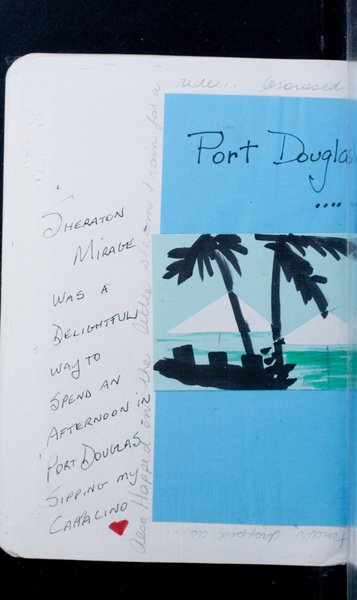 ride... browsed
Port Dougla
....
SHERATON
MIRAGE
WAS A
DELIGHTFUL
WAY TO
SPEND AN
AFTERNOON IN
PORT DOUGLAS
SIPPING MY
CAPPACINO
Also Hopped onto the little steam train for a
dropped us...